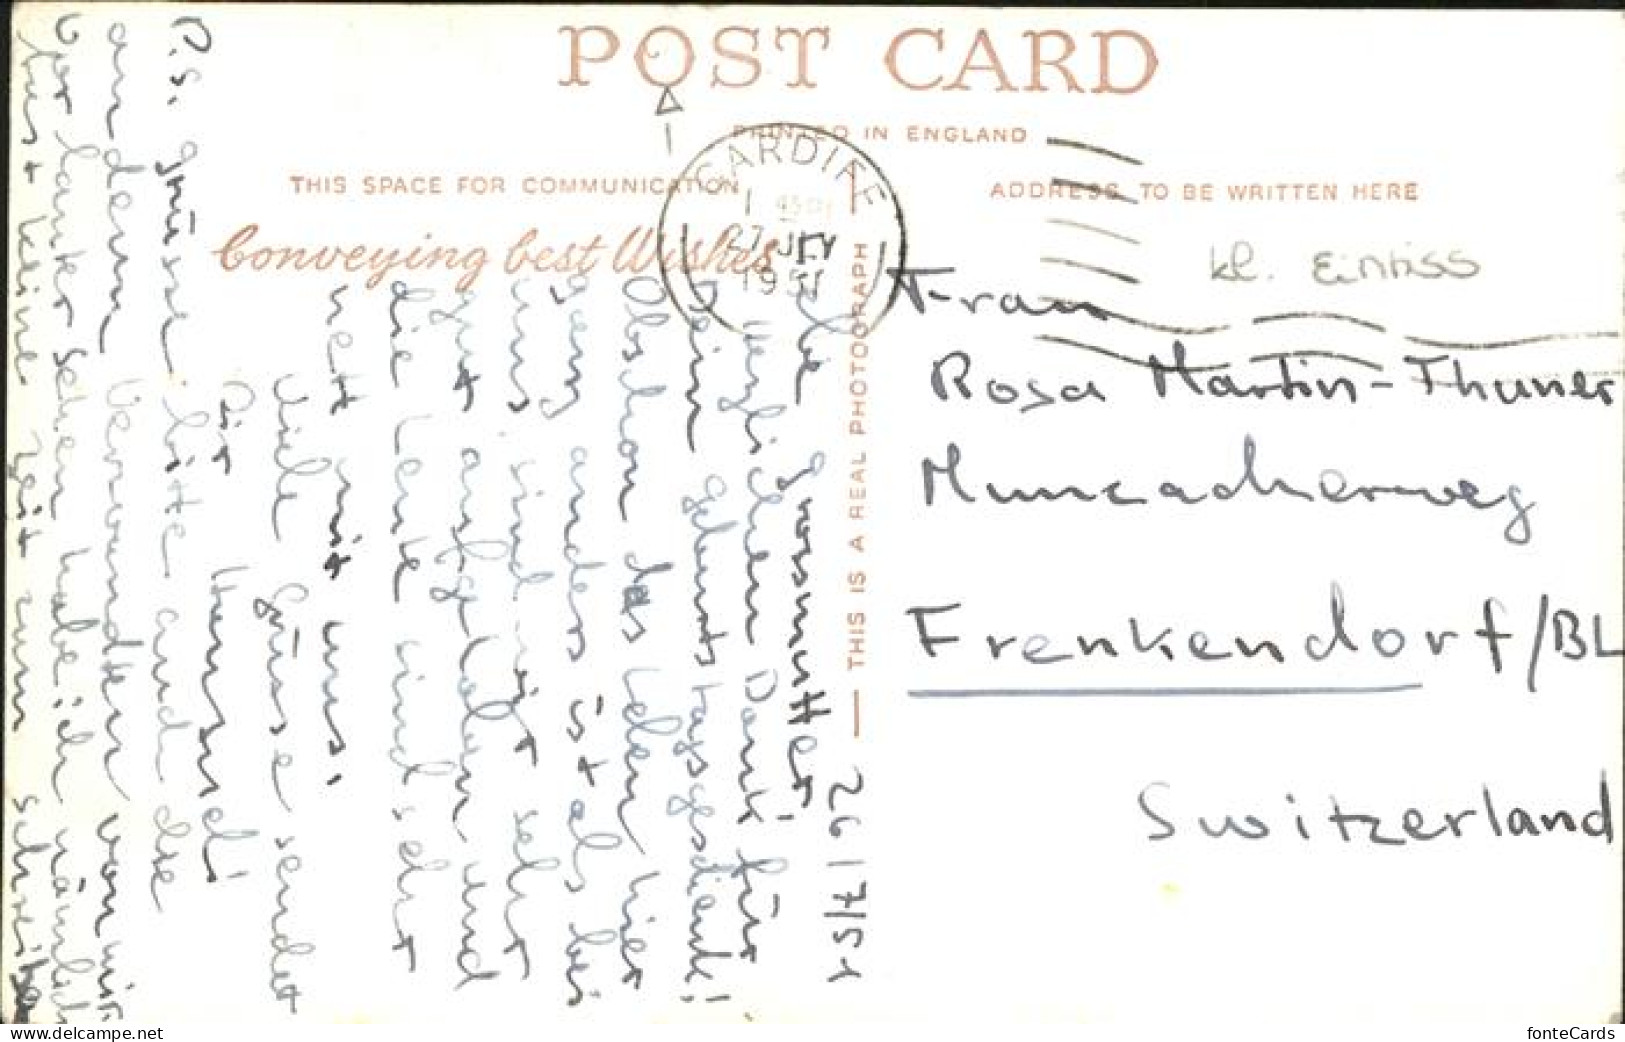 POST CARD
PRINTED IN ENGLAND
THIS SPACE FOR COMMUNICATION
ADDRESS TO BE WRITTEN HERE
Conveying best Wishes
CARDIFF
27 JLY
1951
THIS IS A REAL PHOTOGRAPH
kl. Einriss
Frau
Rosa Martin-Thuner
Munzacherweg
Frenkendorf/BL
Switzerland
26/7/51
Liebe Grossmutter!
Herzlichen Dank für
Dein Geburtstagsgeschenk!
Obschon das Leben hier
ganz anders ist als bei
uns sind wir sehr
gut aufgehoben und
die Leute sind sehr
nett mit uns.
Viele Grüsse sendet
Dir Hansruedi
P.S. grüsse bitte auch die
andern Verwandten von mir.
Vor lauter Sehen habe ich nämlich
fast keine Zeit zum schreiben
fonteCards
www.delcampe.net